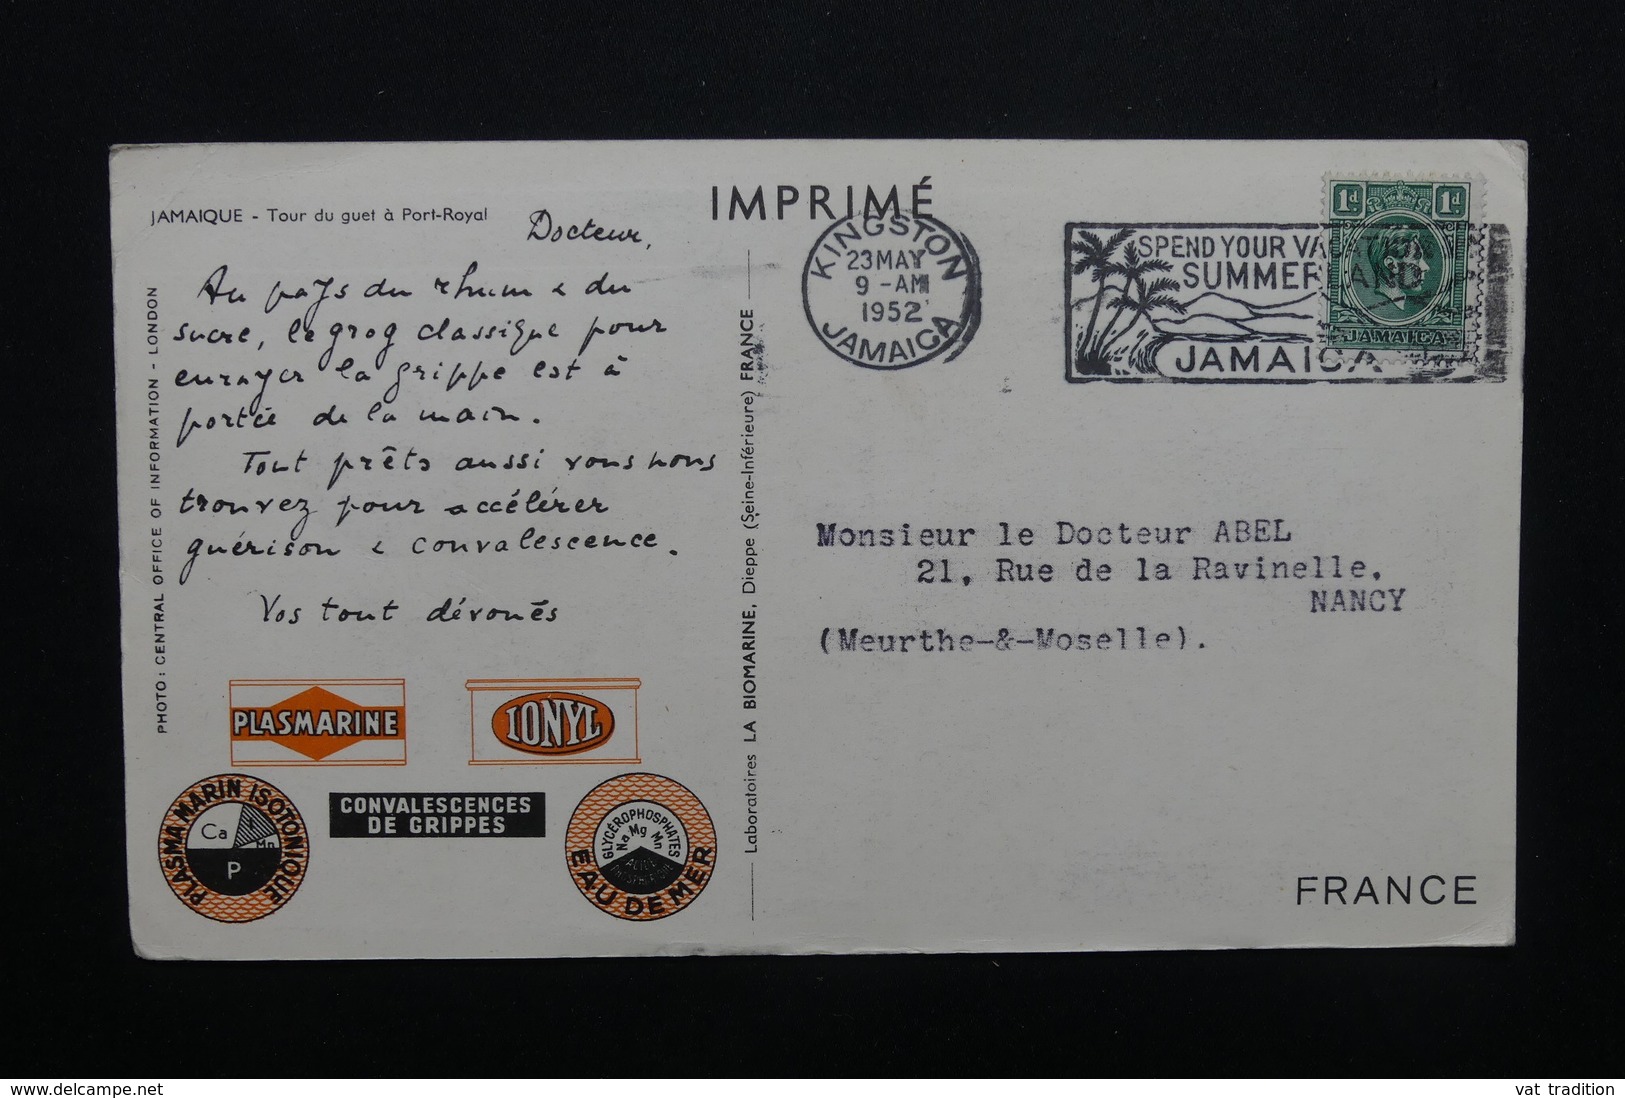 JAMAIQUE - Tour du guet à Port-Royal
IMPRIMÉ
Docteur,
Au pays du rhum & du
sucre, le grog classique pour
enrayer la grippe est à
portée de la main.
Tout prêts aussi vous nous
trouvez pour accélérer
guérison & convalescence.
Vos tout dévoués
PHOTO: CENTRAL OFFICE OF INFORMATION - LONDON
PLASMARINE
IONYL
PLASMA MARIN ISOTONIQUE
Ca
Mn
P
CONVALESCENCES
DE GRIPPES
GLYCÉROPHOSPHATES
Na Mg Mn
ACIDE
PHOSPHORIQUE
EAU DE MER
Laboratoires LA BIOMARINE, Dieppe (Seine-Inférieure) FRANCE
KINGSTON
23 MAY
9 - AM
1952
JAMAICA
SPEND YOUR VACATION
SUMMER LAND
JAMAICA
1d 1d
JAMAICA
Monsieur le Docteur ABEL
21, Rue de la Ravinelle,
NANCY
(Meurthe-&-Moselle).
FRANCE
www.delcampe.net
vat tradition